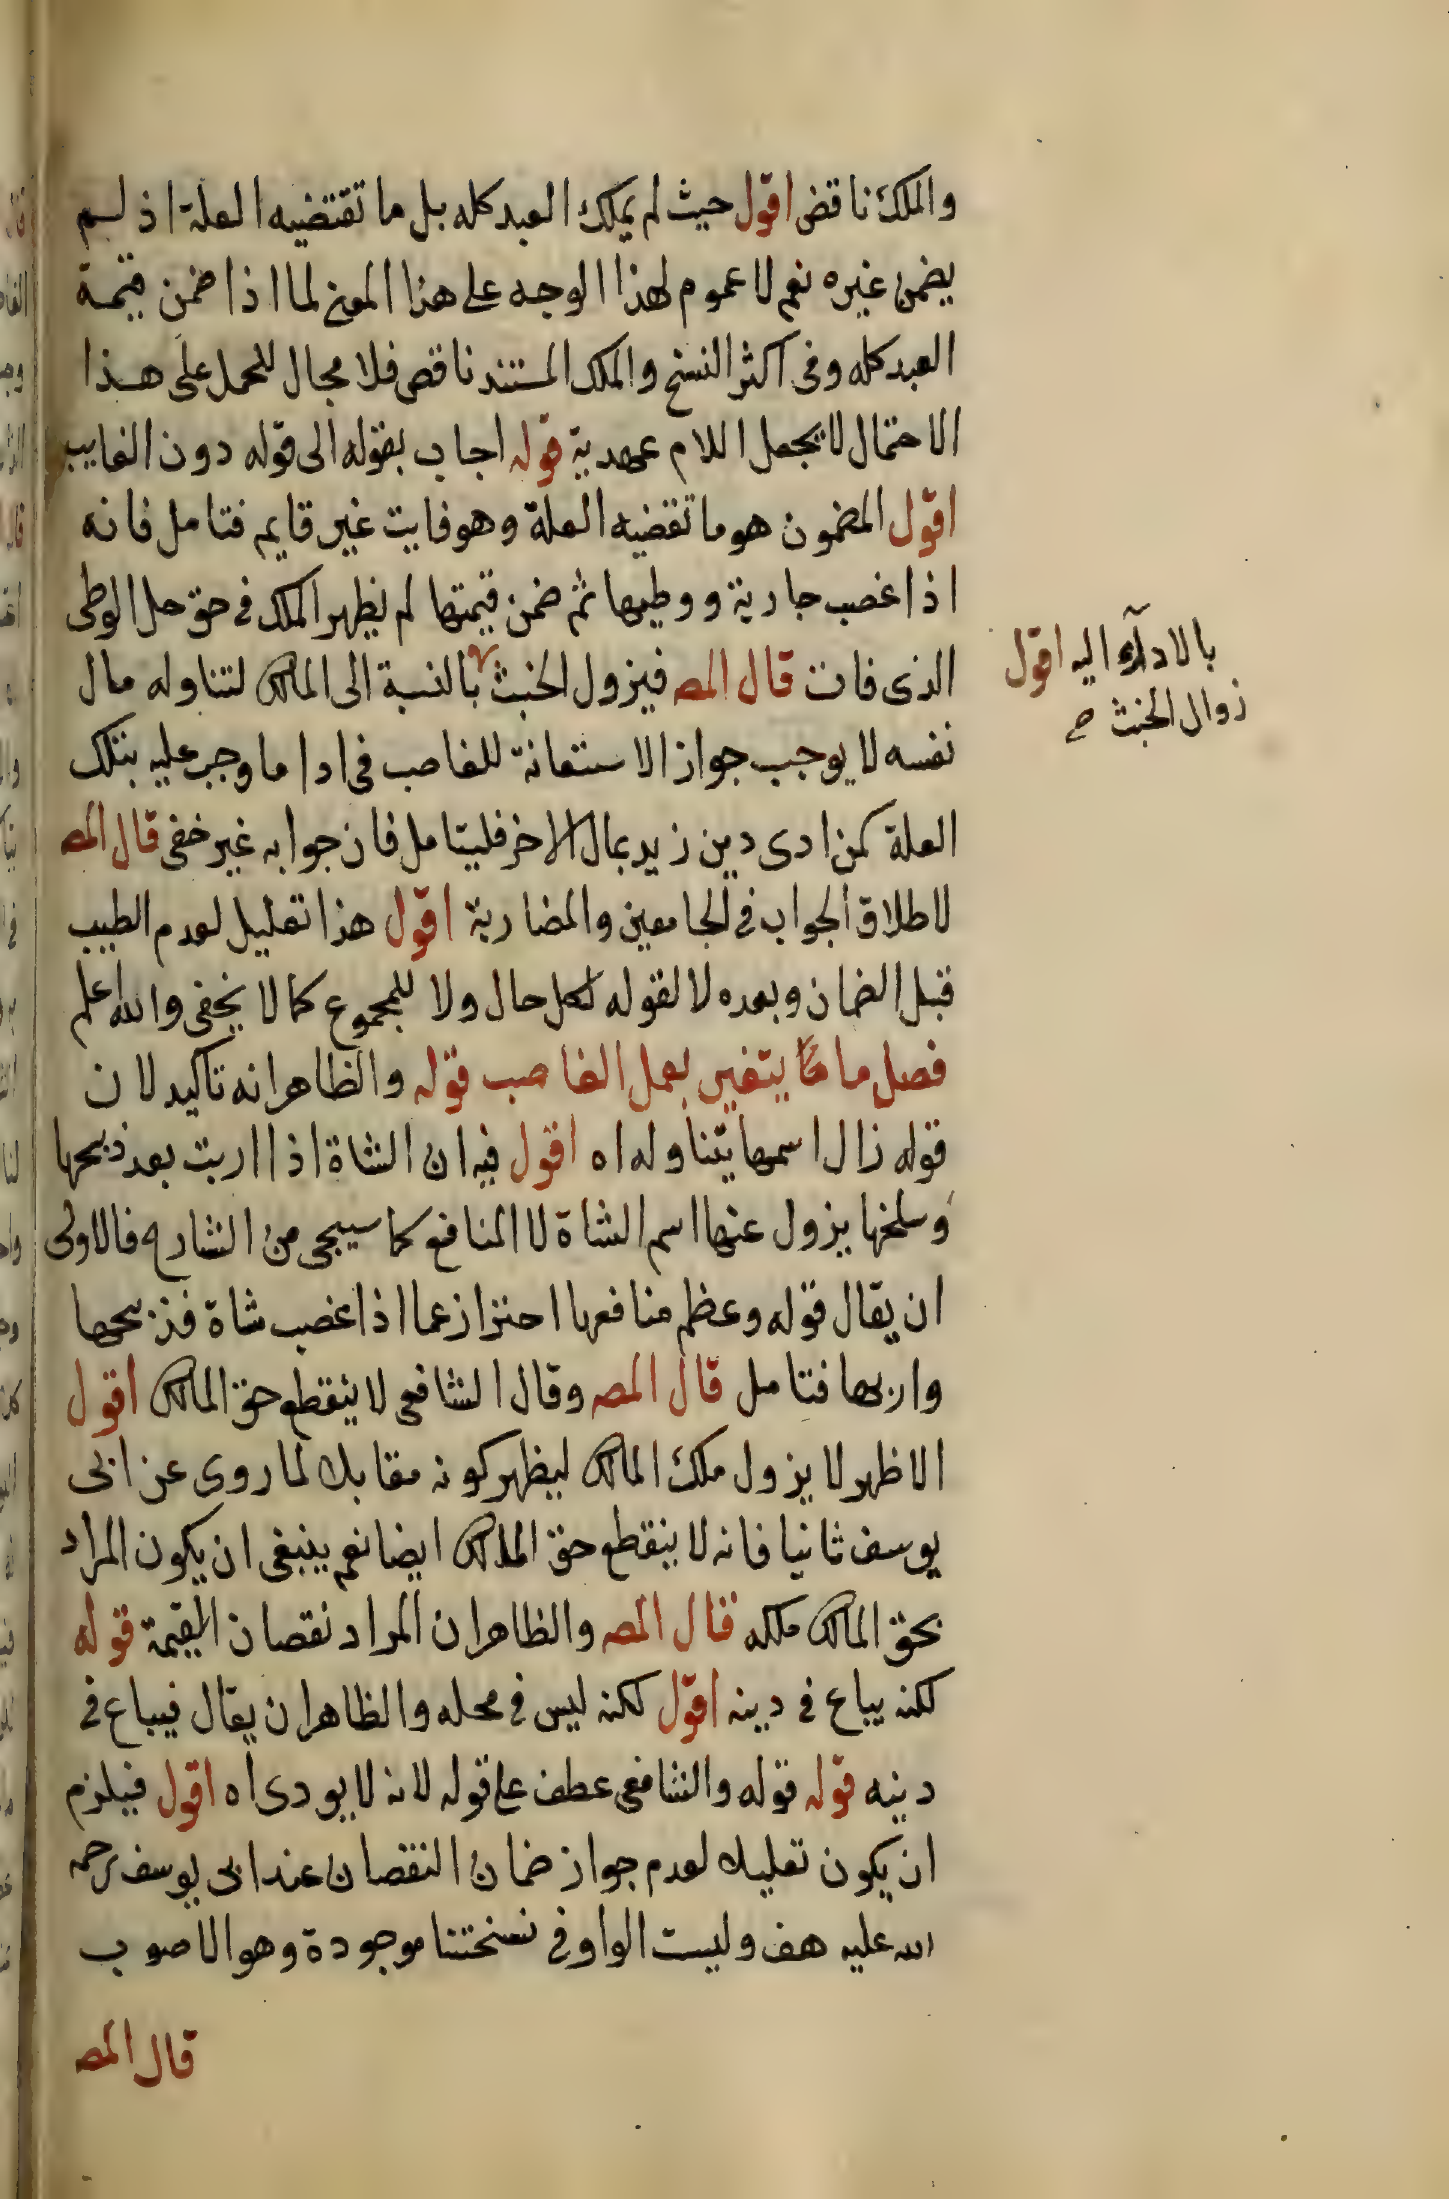 والملك ناقص اقول حيث لم يملك العبد كله بل ما تقتضيه العلة اذ لم
يضمن غيره نعم لا عموم لهذا الوجه على هذا المعنى لما اذا ضمن قيمة
العبد كله وفى اكثر النسخ والملك المستند ناقص فلا مجال للحمل على هذا
الاحتمال لا بجعل اللام عهدية قوله اجاب بقوله الى قوله دون الغايب
اقول المضمون هو ما تقضيه العلة وهو فايت غير قايم فتامل فانه
اذا غصب جارية ووطيها ثم ضمن قيمتها لم يظهر الملك فى حق حل الوطى
الذى فات قال المص فيزول الخبث بالنسبة الى المالك لتناوله مال
بالاداء اليه اقول
زوال الخبث صح
نفسه لا يوجب جواز الاستعانة للغاصب فى ادا ما وجب عليه بتلك
العلة كمن ادى دين زيد بمال الاخر فليتامل فان جوابه غير خفى قال المص
لاطلاق الجواب فى الجامعين والمضاربة اقول هذا تعليل لعدم الطيب
قبل الضمان وبعده لا لقوله لكل حال ولا للمجموع كما لا يخفى والله اعلم
فصل ما يتغير بعمل الغاصب قوله والظاهر انه تاكيد لان
قوله زال اسمها يتناوله اه اقول فيه ان الشاة اذا اربت بعد ذبحها
وسلخها يزول عنها اسم الشاة لا المنافع كما سيجى من الشارح فالاولى
ان يقال قوله وعظم منافعها احتراز عما اذا غصب شاة فذبحها
واربها فتامل قال المص وقال الشافعى لا ينقطع حق المالك اقول
الاظهر لا يزول ملك المالك ليظهر كونه مقابلا لما روى عن ابى
يوسف ثانيا فانه لا ينقطع حق المالك ايضا نعم ينبغى ان يكون المراد
بحق المالك ملكه قال المص والظاهر ان المراد نقصان القيمة قوله
لكنه يباع فى دينه اقول لكنه ليس فى محله والظاهر ان يقال فيباع فى
دينه قوله قوله والشافعى عطف على قوله لانه لا يودى اه اقول فيلزم
ان يكون تعليلا لعدم جواز ضمان النقصان عند ابى يوسف رحمه
الله عليه هف وليست الواو فى نسختنا موجودة وهو الاصوب
قال المص